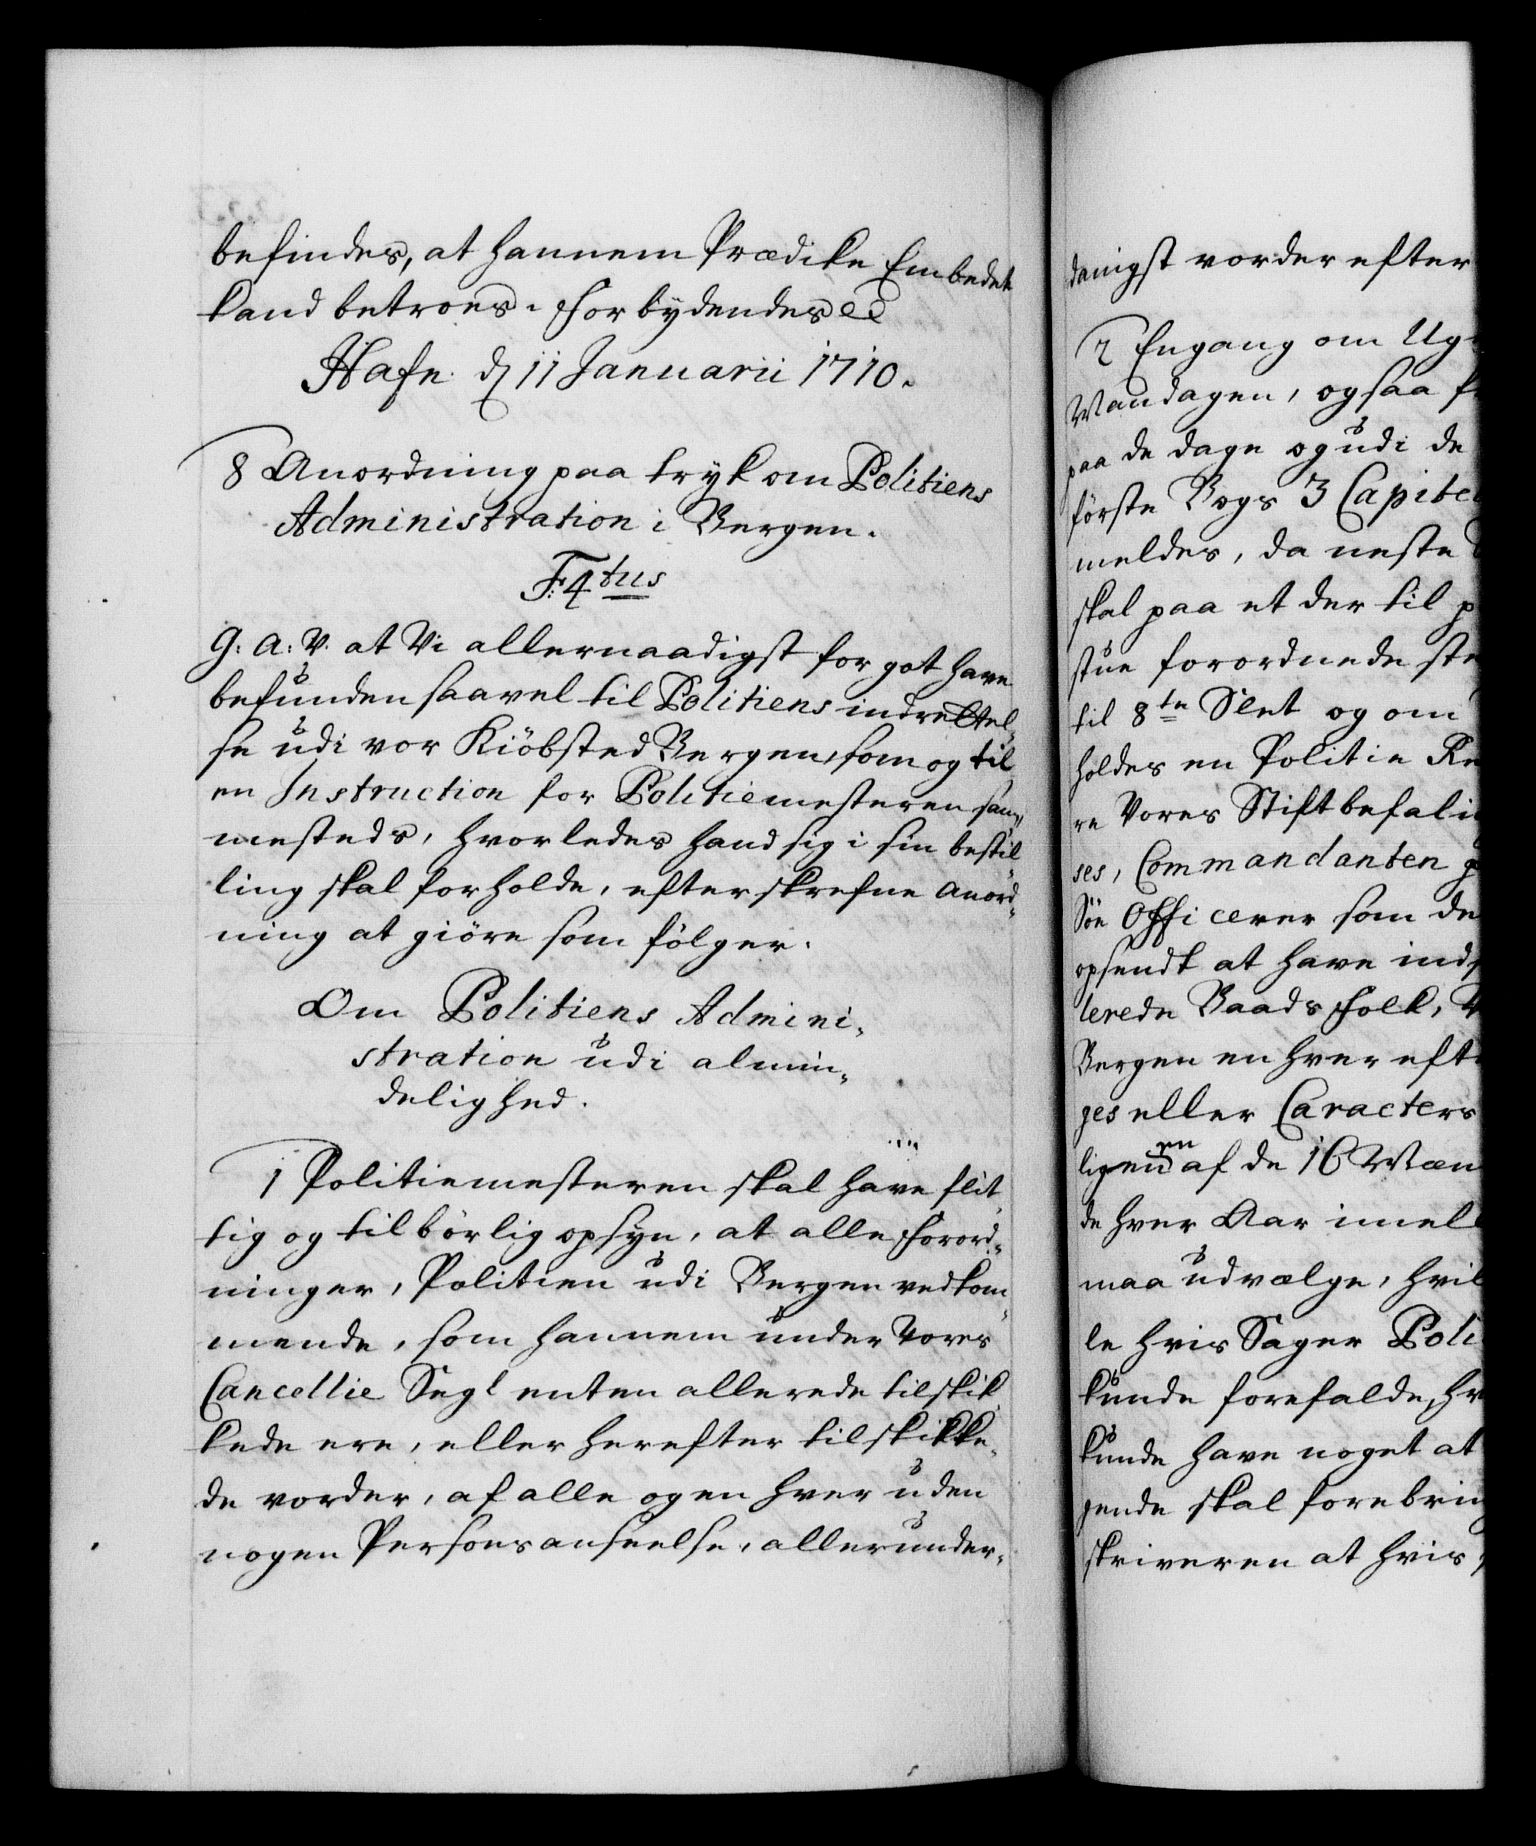 befindes, at hannem Prædike Embedet
kand betroes. Forbydendes etc
Hafn. d 11 Januarii 1710.
8 Anordning paa tryk om Politiens
Administration i Bergen.
F. 4tus
G: A: V. at Vi allernaadigst for got have
befunden saavel til Politiens indrettel-
se udi vor Kiöbsted Bergen, som og til
en Instruction for Politiemesteren sam-
mesteds, hvorledes hand sig i sin bestil-
ling skal forholde, efterskrefne anord-
ning at giöre som fölger.
Om Politiens Admini-
stration udi almin-
delighed.
1 Politiemesteren skal have flit-
tig og tilbörlig opsyn, at alle Forord-
ninger, Politien udi Bergen vedkom-
mende, som hannem under Vores
Cancellie Segl enten allerede tilskik-
kede ere, eller herefter tilskikke-
de vorder, af alle og en hver uden
nogen Persons anseelse, allerunder-
danigst vorder efter
2 Engang om Ug
Mandagen, ogsaa
paa de dage og udi de
förste Bogs 3 Capite
meldes, da neste
skal paa et der til
stue forordnede ste
til 8te Slet og om
holdes en Politie
re Vores Stiftbefali
ses, Commandanten
Söe Officerer som de
opsendt at have ind
lerede Baads Folk,
Bergen en hver eft
ges eller Caracters
ligen en af de 16 Mæn
de hver Aar imel
maa udvælge, hvil
le hvis Sager Poli
kunde forefalde, hv
kunde have noget at
gende skal forebrin
skriveren at hvis